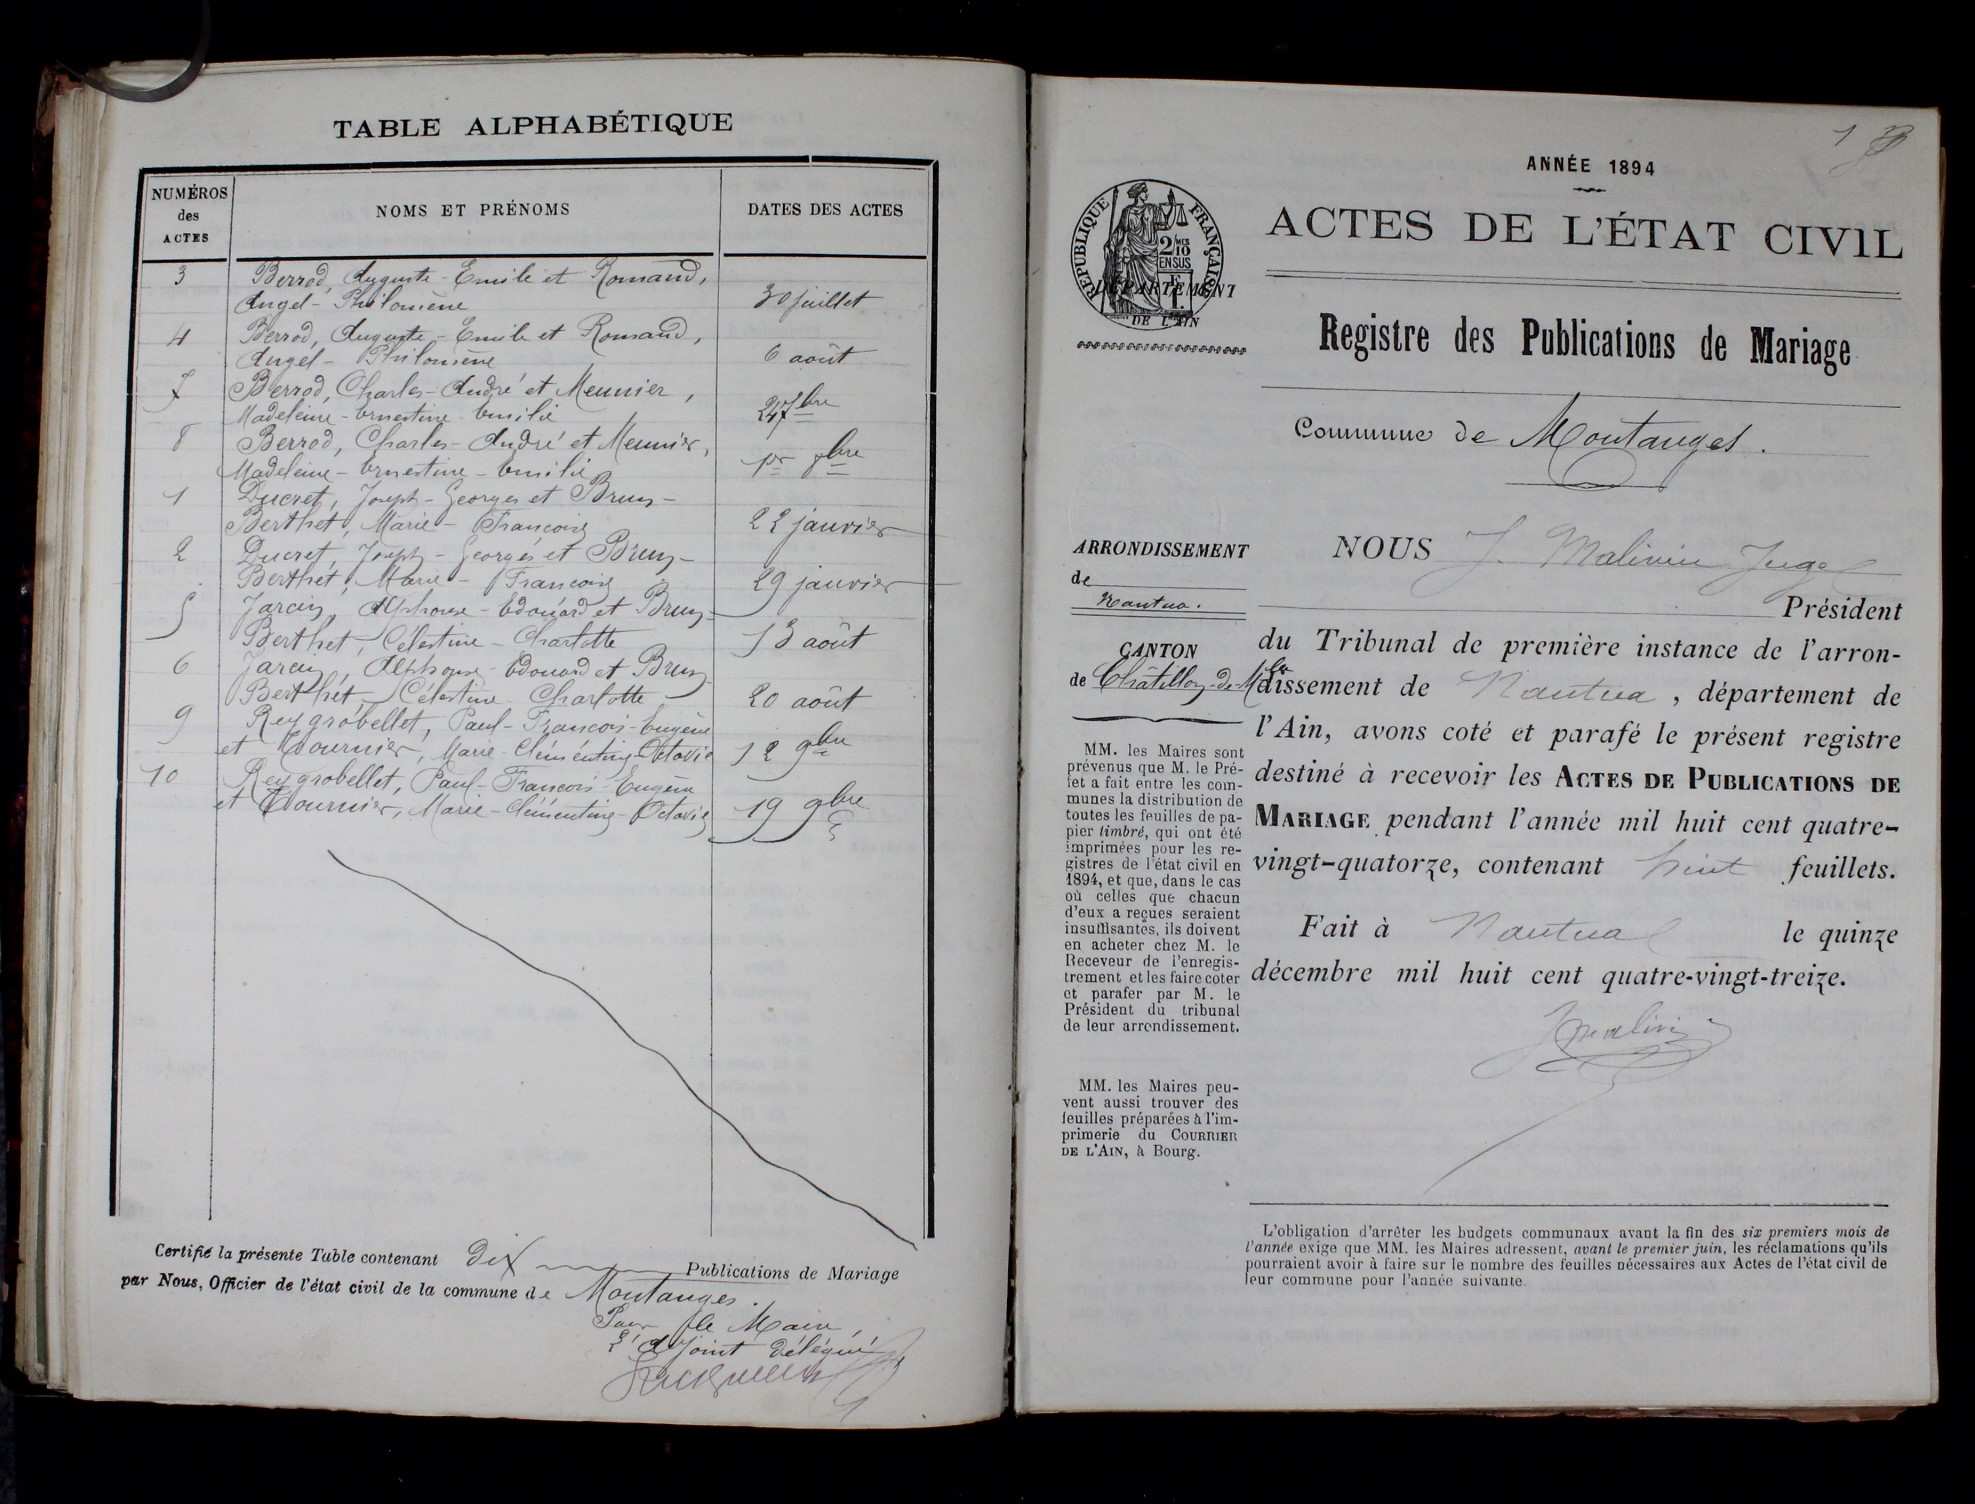 TABLE ALPHABÉTIQUE
NUMÉROS
des
ACTES
NOMS ET PRÉNOMS
DATES DES ACTES
3 Berrod, Auguste-Emile et Romand,
Angel-Philomène 30 juillet
4 Berrod, Auguste-Emile et Romand,
Angel-Philomène 6 août
7 Berrod, Charles-André et Meunier,
Madeleine-Ernestine-Emilie 24 7bre
8 Berrod, Charles-André et Meunier,
Madeleine-Ernestine-Emilie 1er 8bre
1 Ducret, Joseph-Georges et Brun-
Berthet, Marie-Françoise 22 janvier
2 Ducret, Joseph-Georges et Brun-
Berthet, Marie-Françoise 29 janvier
5 Jarcin, Alphonse-Edouard et Brun-
Berthet, Célestine-Charlotte 13 août
6 Jarcin, Alphonse-Edouard et Brun-
Berthet, Célestine-Charlotte 20 août
9 Reygrobellet, Paul-François-Eugène
et Tournier, Marie-Clémentine-Octavie 12 9bre
10 Reygrobellet, Paul-François-Eugène
et Tournier, Marie-Clémentine-Octavie 19 9bre
Certifié la présente Table contenant Dix Publications de Mariage
par Nous, Officier de l'état civil de la commune de Montanges.
Pour le Maire,
L'adjoint délégué
1
ANNÉE 1894
RÉPUBLIQUE FRANÇAISE
2/10 MES
EN SUS
DÉPARTEMENT
DE L'AIN
ACTES DE L'ÉTAT CIVIL
Registre des Publications de Mariage
Commune de Montanges.
ARRONDISSEMENT
de
Nantua.
CANTON
de Châtillon-de-Mlle
MM. les Maires sont
prévenus que M. le Pré-
fet a fait entre les com-
munes la distribution de
toutes les feuilles de pa-
pier timbré, qui ont été
imprimées pour les re-
gistres de l'état civil en
1894, et que, dans le cas
où celles que chacun
d'eux a reçues seraient
insuffisantes, ils doivent
en acheter chez M. le
Receveur de l'enregis-
trement et les faire coter
et parafer par M. le
Président du tribunal
de leur arrondissement.
MM. les Maires peu-
vent aussi trouver des
feuilles préparées à l'im-
primerie du COURRIER
DE L'AIN, à Bourg.
NOUS J. Malivin Juge
Président
du Tribunal de première instance de l'arron-
dissement de Nantua, département de
l'Ain, avons coté et parafé le présent registre
destiné à recevoir les ACTES DE PUBLICATIONS DE
MARIAGE pendant l'année mil huit cent quatre-
vingt-quatorze, contenant huit feuillets.
Fait à Nantua le quinze
décembre mil huit cent quatre-vingt-treize.
L'obligation d'arrêter les budgets communaux avant la fin des six premiers mois de
l'année exige que MM. les Maires adressent, avant le premier juin, les réclamations qu'ils
pourraient avoir à faire sur le nombre des feuilles nécessaires aux Actes de l'état civil de
leur commune pour l'année suivante.